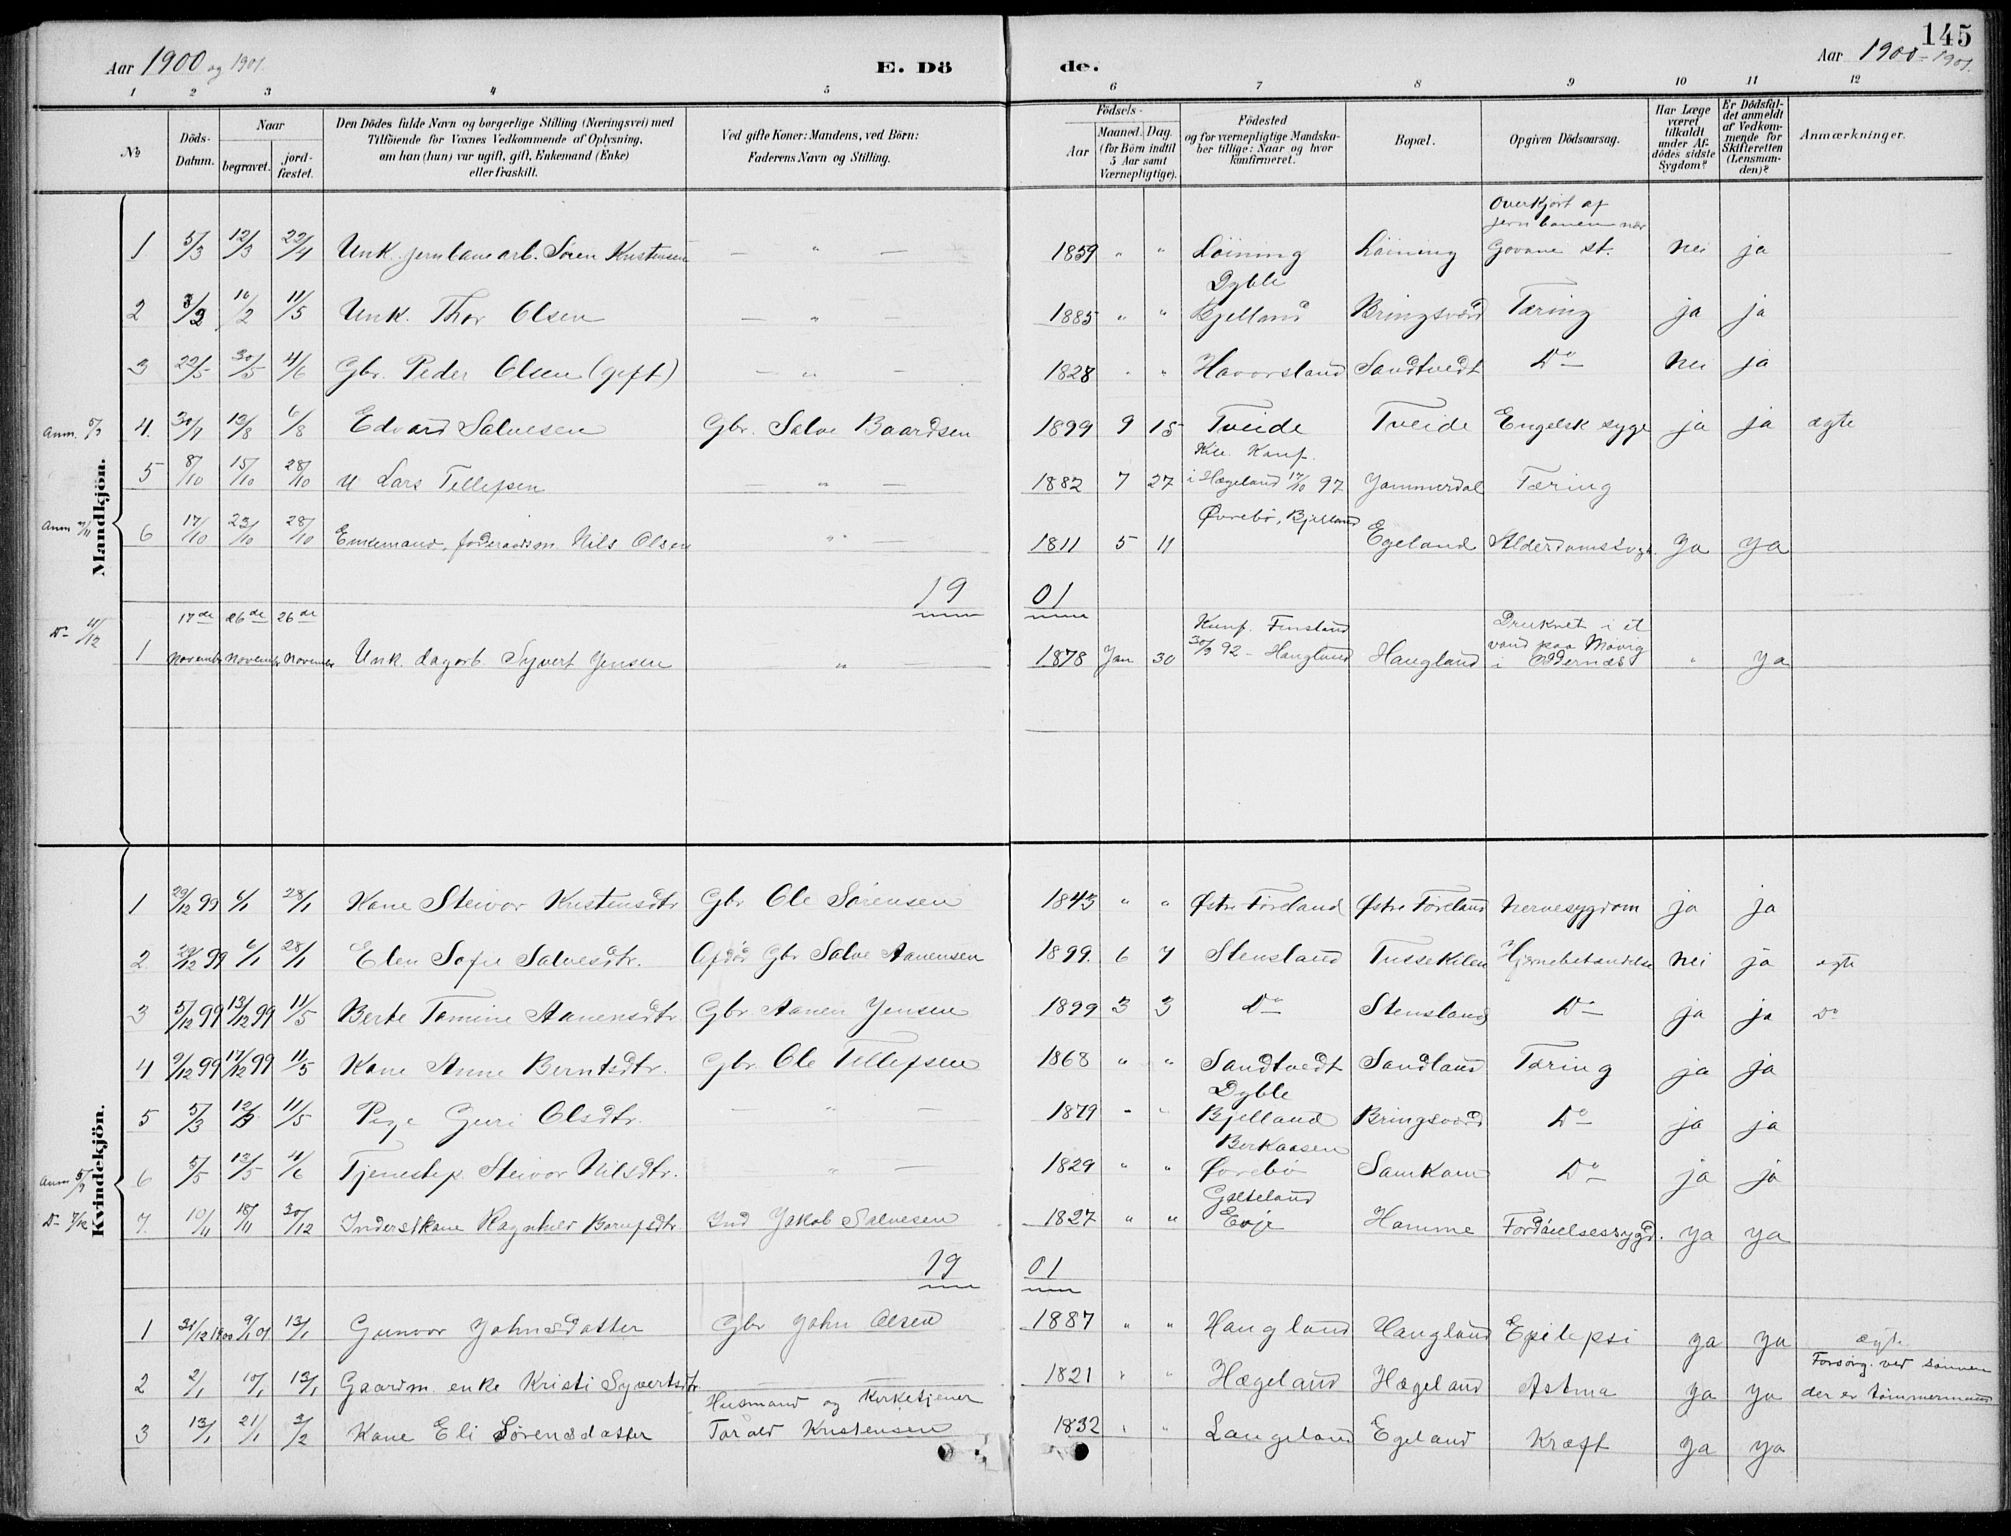 145
Aar 1900 og 1901.
E. Dö de.
Aar 1900-1901.
1 2 3 4 5 6 7 8 9 10 11 12
No
Döds-Datum.
Naar
begravet. jord-fæstet.
Den Dödes fulde Navn og borgerlige Stilling (Næringsvei) med
Tilföiende for Voxnes Vedkommende af Oplysning,
om han (hun) var ugift, gift, Enkemand (Enke)
eller fraskilt.
Ved gifte Koner: Mandens, ved Börn:
Faderens Navn og Stilling.
Födsels-
Aar
Maaned. Dag.
(for Börn indtil
5 Aar samt
Værnepligtige).
Födested
og for værnepligtige Mandska-
ber tillige: Naar og hvor
konfirmeret.
Bopæl.
Opgiven Dödsaarsag.
Har Læge
været
tilkaldt
under Af-
dödes sidste
Sygdom?
Er Dödsfal-
det anmeldt
af Vedkom-
mende for
Skifteretten
(Lensman-
den)?
Anmærkninger.
Mandkjön.
Overkjört af
jernbanen nær
1 5/3 12/3 22/4 Unk. jernbanearb. Sören Kristensen — " — 1859 " " Löining Löining Govane st. nei ja
Dyble
2 3/2 10/2 11/5 Unk. Thor Olsen — " — 1885 " " Bjelland Bringsværd Tæring ja ja
3 22/5 30/5 4/6 Gbr. Peder Olsen (gift) — " — 1828 " " Havorsland Sandtvedt Do nei ja
Anm. 5/9 4. 30/7 13/8 6/8 Edvard Salvesen Gbr. Salve Baardsen 1899 9 15 Tveide Tveide Engelsk syge ja ja ægte
Konf.
5 8/10 15/10 28/10 U Lars Tellefsen — " — 1882 7 27 i Hægeland 17/10 97 Jammerdal Tæring
Øvrebö, Bjelland
Anm 6 17/10 23/10 28/10 Enkemand, föderaadsm. Nils Olsen " — 1811 5 11 Egeland Alderdomssvagh. Ja Ja
19 01
17de 26de 26de Konf. Finsland Druknet i et
Do 4/12 1 November November November Unk. dagarb. Syvert Jensen " 1878 Jan 30 30/9 92 - Haugland Haugland vand paa Mosvig " Ja
i Oddernæs
Kvindekjön.
1 29/12 99 6/1 28/1 Kone Steivor Kristensdtr Gbr Ole Sörensen 1845 " " Østre Föreland Østre Föreland Nervesygdom ja ja
2. 29/12 99 6/1 28/1 Elen Sofie Salvesdtr. Afdöd Gbr Salve Aanensen 1899. 6 7 Stensland Tussekilen Hjernebetændelse nei ja ægte
3 5/12 99 13/12 99 11/5 Berte Tomine Aanensdtr Gbr Aanen Jensen 1899 3 3 Do Stensland Do ja ja Do
4 9/12 99 17/12 99 11/5 Kone Anne Berntsdtr. Gbr. Ole Tellefsen 1868 " " Sandtvedt Sandland Tæring ja ja
Dyble
5 5/3 12/3 11/5 Pige Guri Olsdtr. — " — 1879 " " Bjelland Bringsværd Do ja ja
Berkaasen
Anm 5/9 6 5/5 13/5 4/6 Tjenestep. Steivor Nilsdtr. — " — 1829 " " Øvrebö Samkom Do ja ja
Gjæteland
Do 7/12 7. 10/11 18/11 30/12 Inderstkone Ragnhild Bornfsdtr Ind Jakob Salvesen 1827 " " Evje Homme Fordöielsessygd. ja ja
19 01
1 31/12 1900 9/1 01 13/1 Gunvor Johnsdatter Gbr John Olsen 1887 " " Haugland Haugland Epilepsi ja ja ægte
Forsörg. ved sönnen
2 2/1 10/1 13/1 Gaardm. enke Kristi Syvertsdtr — — 1821 " " Hægeland Hægeland Astma ja ja der er tömmermand
Husmand og Kirketjener
3 13/1 21/1 3/2 Kone Eli Sörensdatter Torald Kristensen 1832 " " Langeland Egeland Kræft ja ja